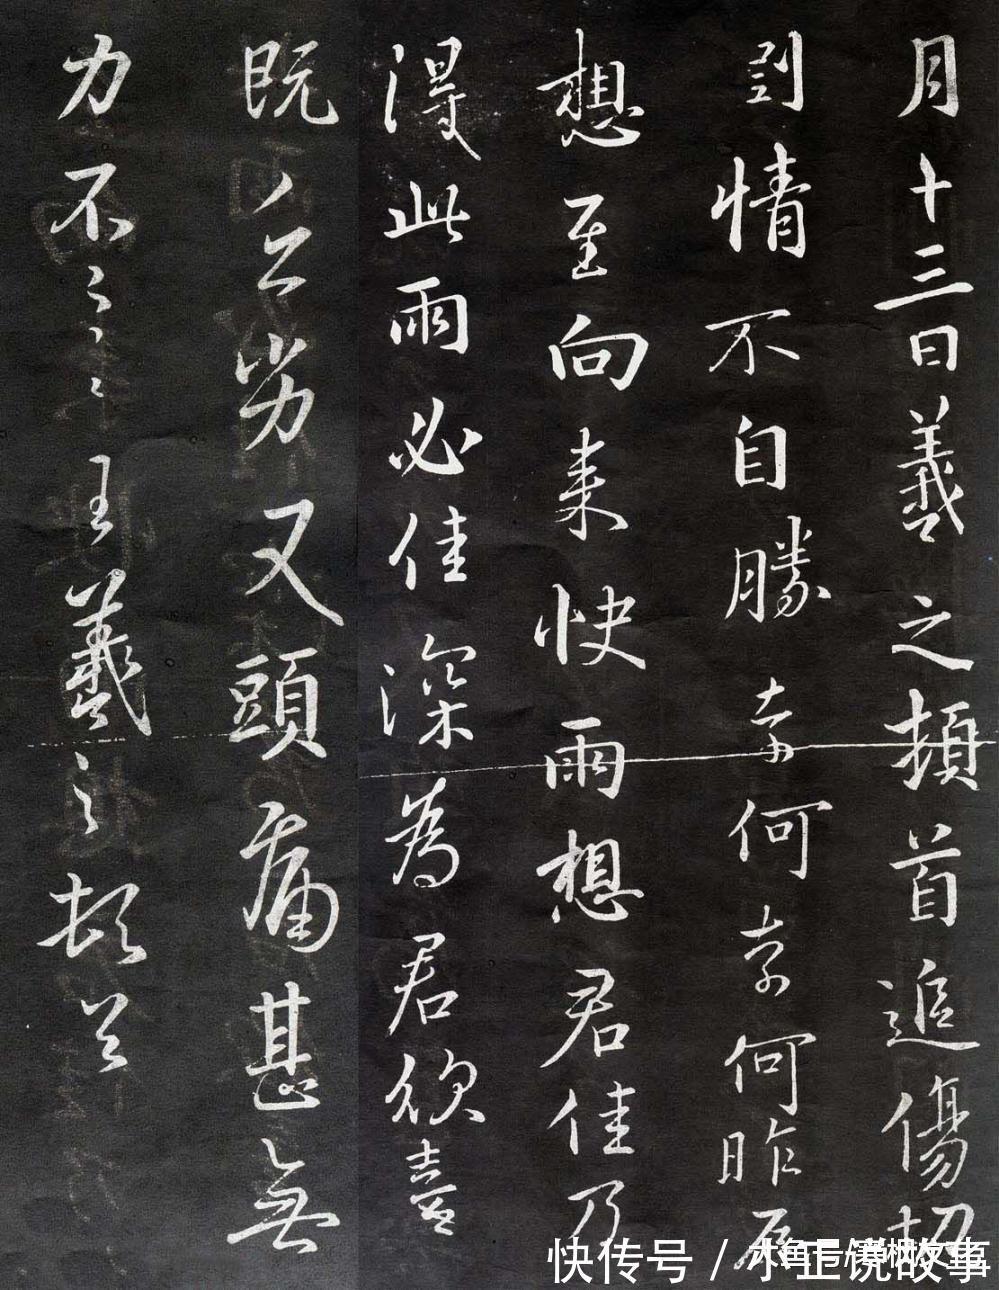 月十三日羲之頓首追傷切
割情不自勝奈何奈何昨辱
想至向来快雨想君佳乃
得此雨必佳深為君欣喜
既八公劣又頭痛甚無
力不王羲之頓首
快传号／小正说故事